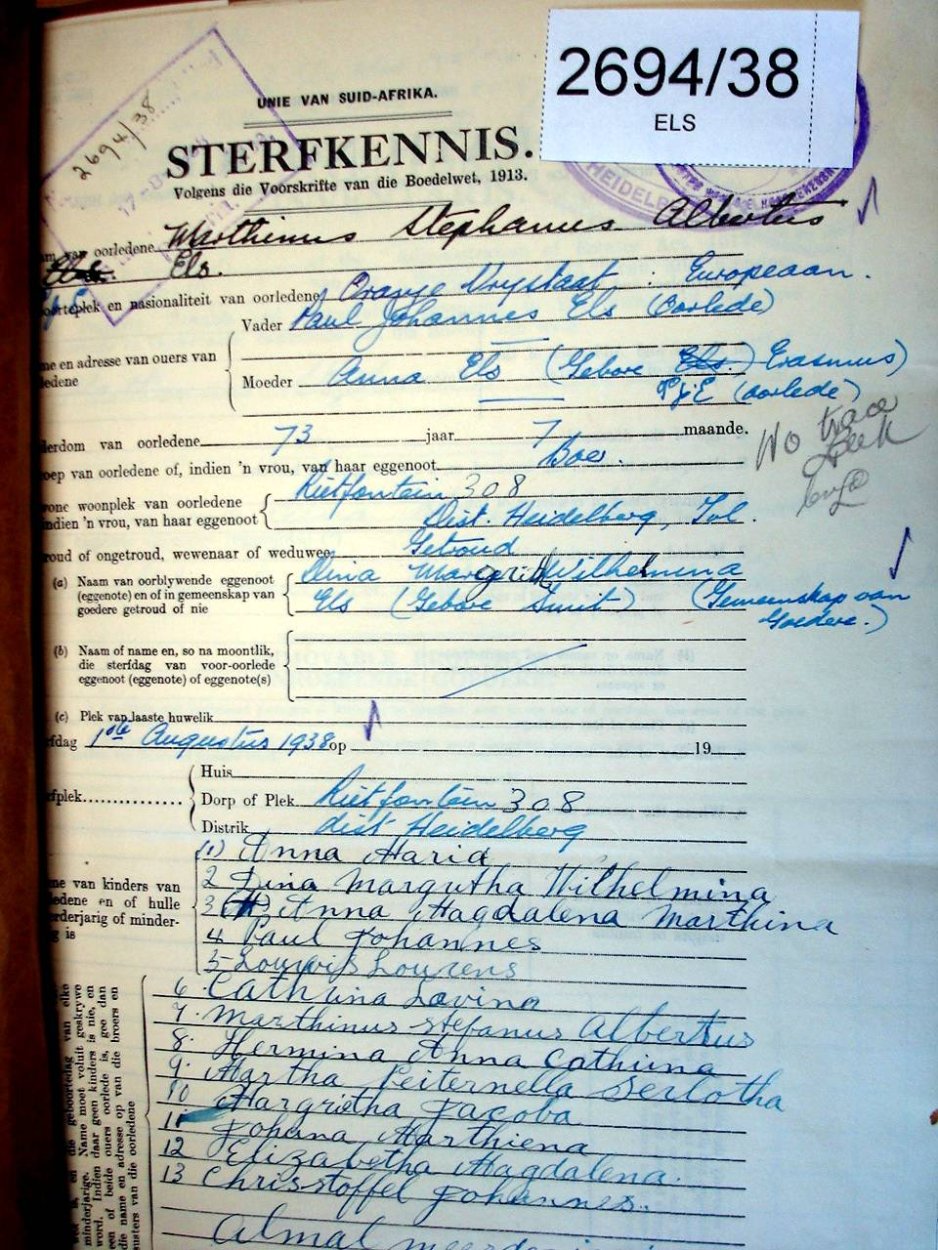 2694/38
ELS
2694/38
HEIDELB
UNIE VAN SUID-AFRIKA.
STERFKENNIS.
Volgens die Voorskrifte van die Boedelwet, 1913.
van oorledene Marthinus Stephanus Albertus
Els.
en nasionaliteit van oorledene Oranje Vrystaat, : Europeaan.
Vader Paul Johannes Els (Oorlede)
me en adresse van ouers van
ledene
Moeder Anna Els (Gebore Els.) Erasmus)
P.J.E (oorlede)
derdom van oorledene 73 jaar 7 maande.
No trace
oep van oorledene of, indien 'n vrou, van haar eggenoot Boer.
one woonplek van oorledene
indien 'n vrou, van haar eggenoot
Rietfontein 308
Dist. Heidelberg, Tvl.
roud of ongetroud, wewenaar of weduwee Getroud
(a) Naam van oorblywende eggenoot
(eggenote) en of in gemeenskap van
goedere getroud of nie
Dina Margritha Wilhelmina
Els (Gebore Smit) (Gemeenskap van
Goedere.)
(b) Naam of name en, so na moontlik,
die sterfdag van voor-oorlede
eggenoot (eggenote) of eggenote(s)
(c) Plek van laaste huwelik
rfdag 1ste Augustus 1938 op 19
Huis
rfplek Dorp of Plek Rietfontein 308
Distrik dist Heidelberg
me van kinders van
ledene en of hulle
erderjarig of minder-
g is
(1) Anna Maria
2 Dina Margritha Wilhelmina
3 Anna Magdalena Marthina
4 Paul Johannes
5 Louwis Lourens
6. Cathrina Lavina
7. Marthinus Stefanus Albertus
8. Hermina Anna Cathrina
9. Martha Peiternella Serlotha
10 Margrietha Jacoba
11 Johana Marthiena
12 Elizabetha Magdalena.
13 Chrisstoffel Johannes.
Almal
die geboortedag van elke
minderjarige. Name moet voluit geskrywe
word. Indien daar geen kinders is nie, en
een of beide ouers oorlede is, gee dan
die name en adresse op van die broers en
susters van die oorledene